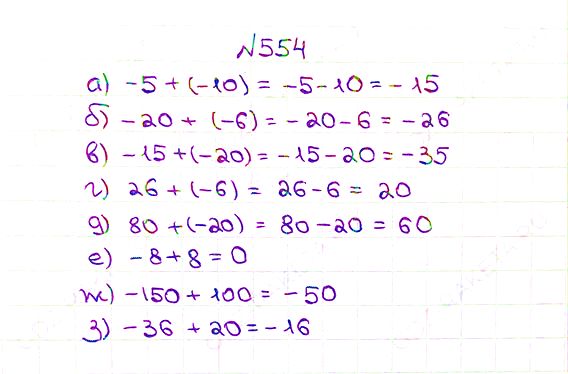 №554
а) -5 + (-10) = -5-10 = -15
б) -20 + (-6) = -20-6 = -26
в) -15+(-20) = -15-20 = -35
г) 26 + (-6) = 26-6 = 20
д) 80 +(-20) = 80-20 = 60
е) -8+8 = 0
ж) -150 + 100 = -50
з) -36 + 20 = -16